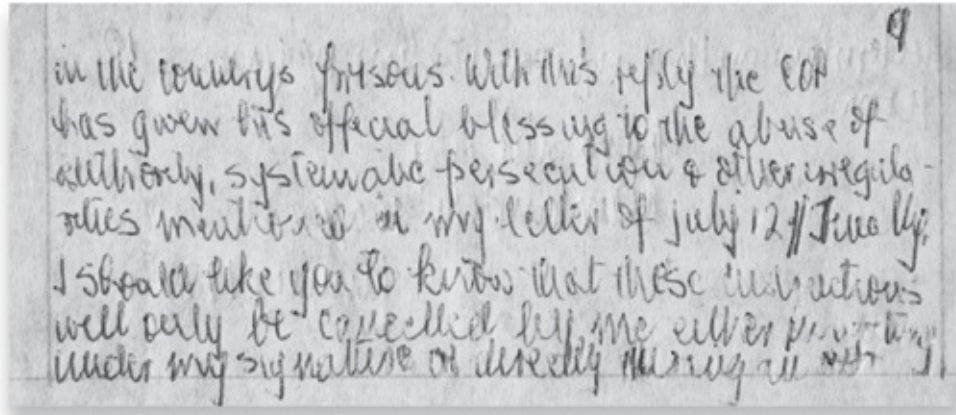 9
in the countrys prisons. With this reply the COP
has given his official blessing to the abuse of
authority, systematic persecution & other irregula-
rities mentioned in my letter of July 12 // Finally,
I should like you to know that these instructions
will only be cancelled by me either in
under my signature or directly during an